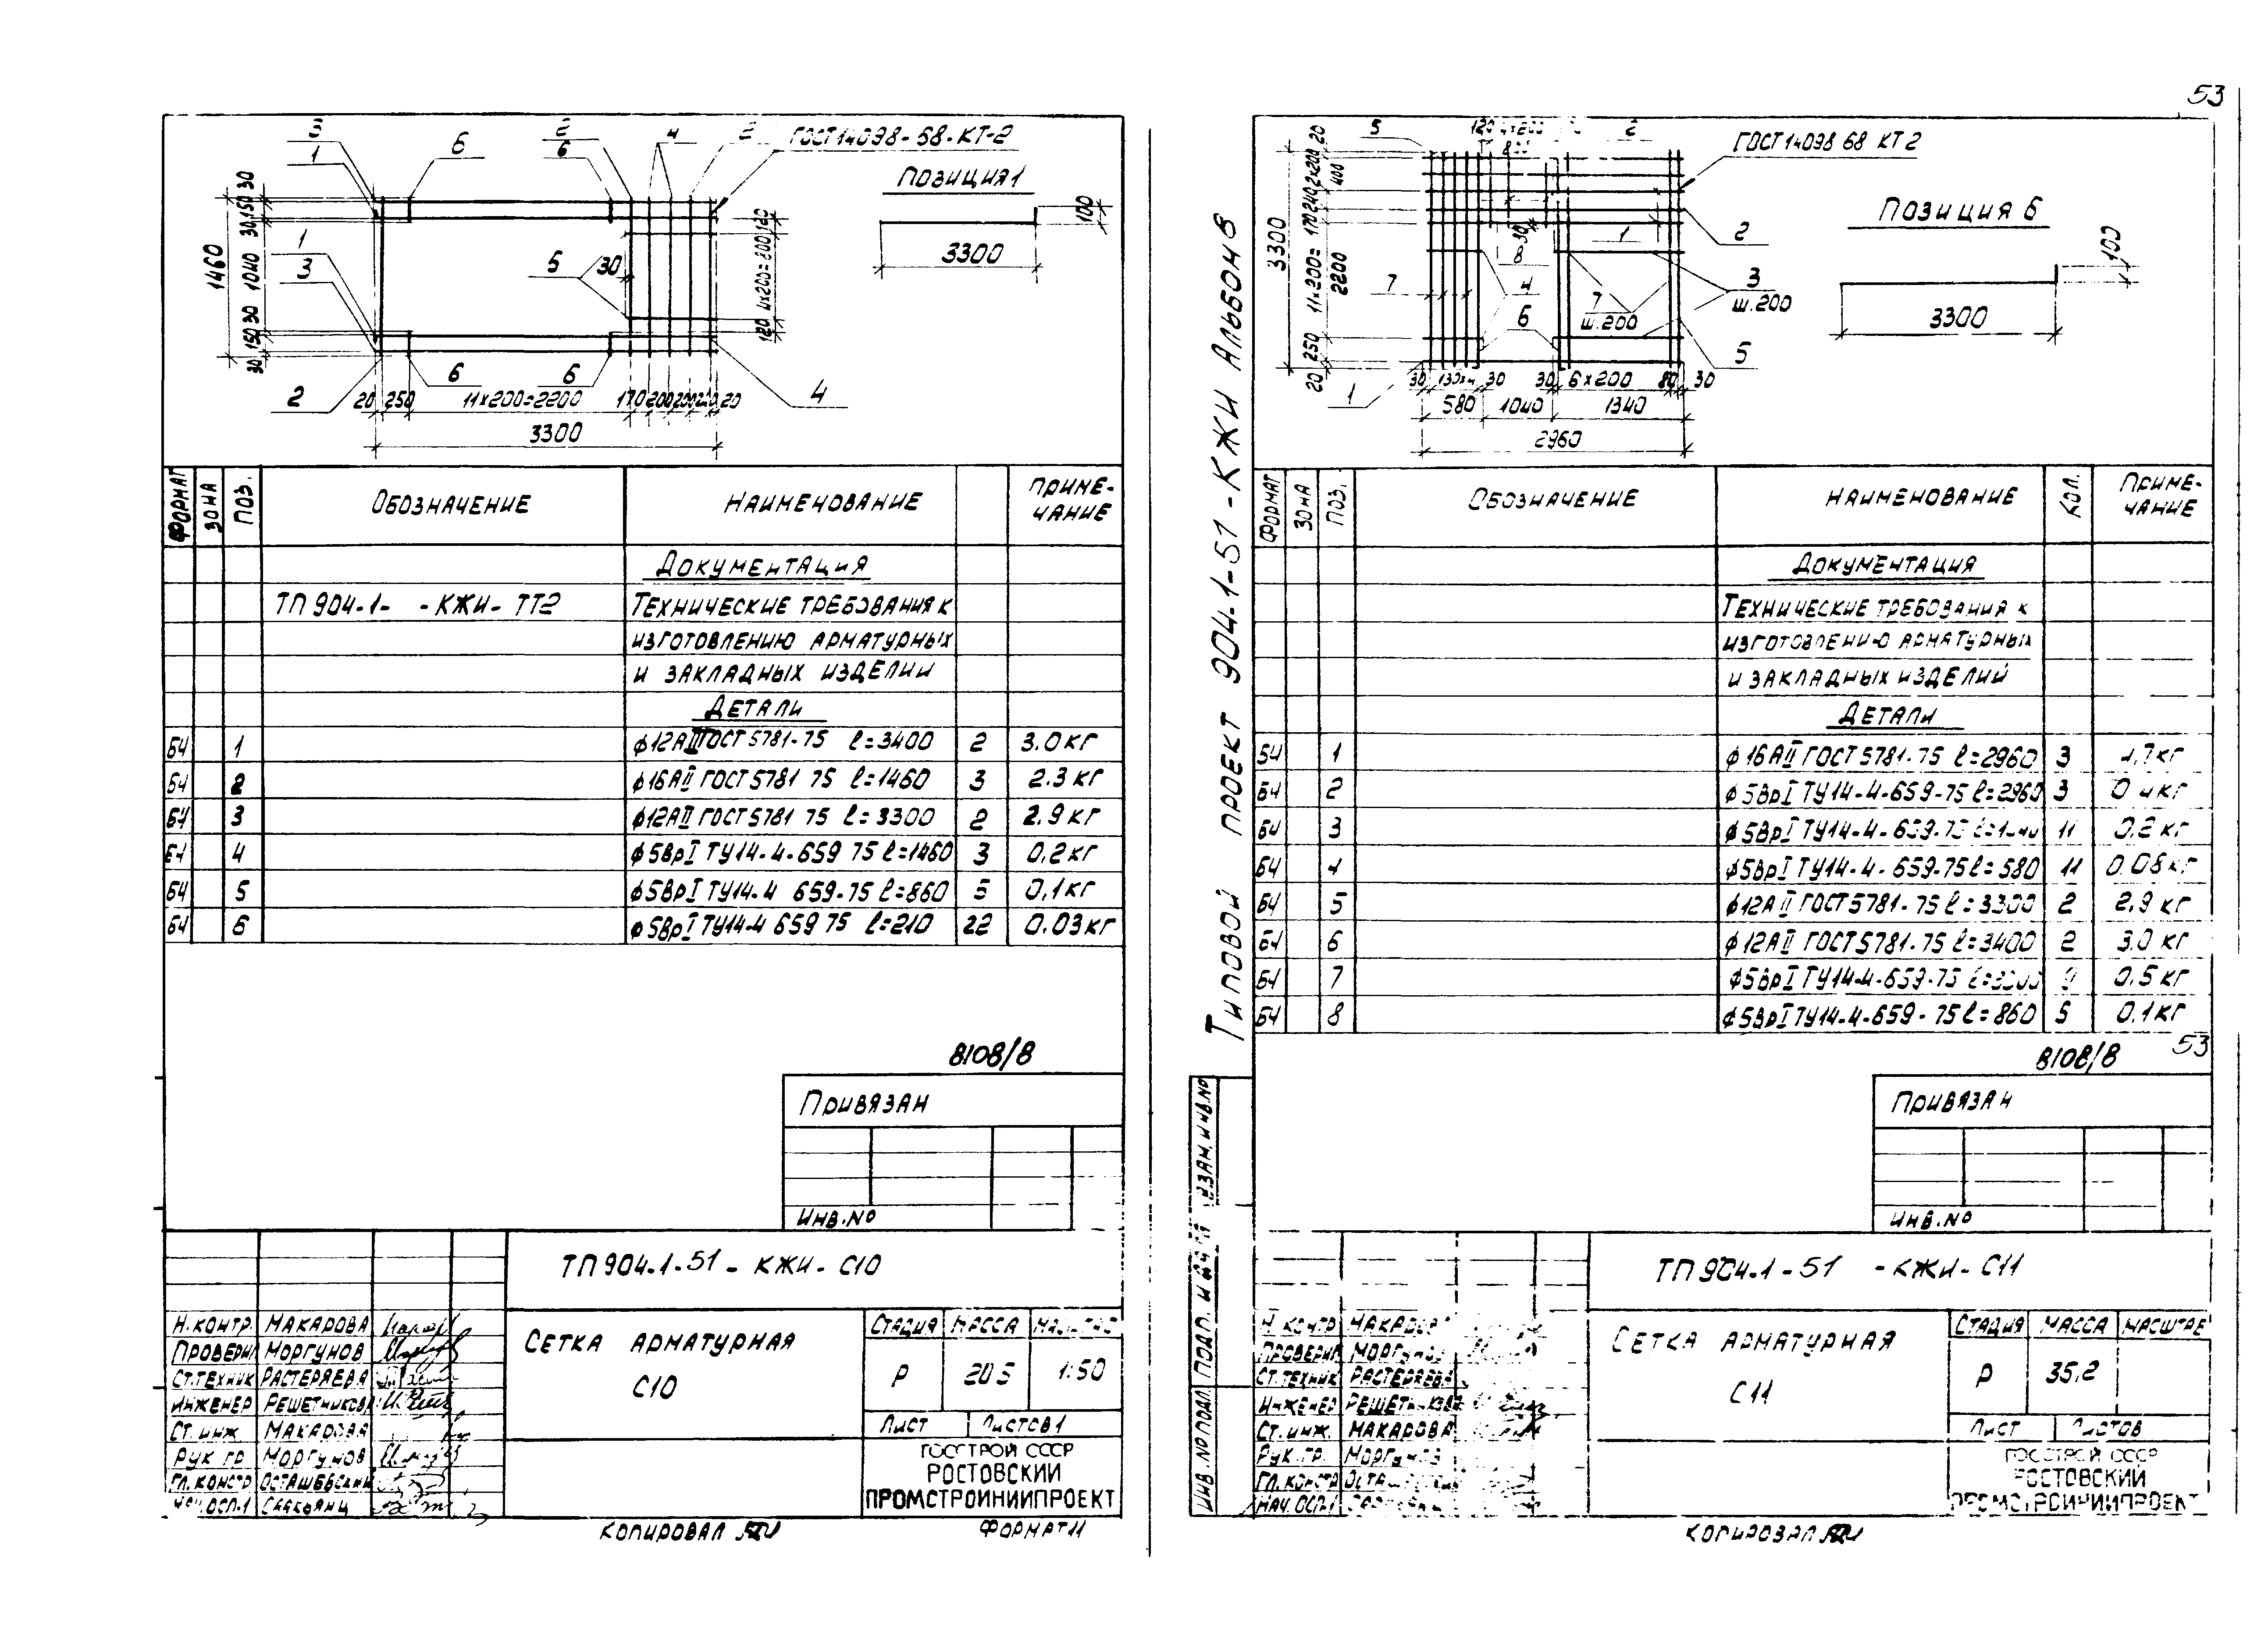 53
3
1
6
2
6
4
2
ГОСТ 14098-68-КТ-2
ПОЗИЦИЯ 1
100
3300
30
150
30
1040
30
150
30
1460
1
3
5
30
120
4х200=800
120
2
6
6
4
20 250 11х200=2200 170 200 200 20
3300
ФОРМАТ
ЗОНА
ПОЗ.
ОБОЗНАЧЕНИЕ
НАИМЕНОВАНИЕ
ПРИМЕ-
ЧАНИЕ
ДОКУМЕНТАЦИЯ
ТП 904-1- -КЖИ- ТТ2 ТЕХНИЧЕСКИЕ ТРЕБОВАНИЯ К
ИЗГОТОВЛЕНИЮ АРМАТУРНЫХ
И ЗАКЛАДНЫХ ИЗДЕЛИИ
ДЕТАЛИ
БЧ 1 ф12АII ГОСТ 5781-75 ℓ=3400 2 3.0 КГ
БЧ 2 ф16АII ГОСТ 5781 75 ℓ=1460 3 2.3 КГ
БЧ 3 ф12АII ГОСТ 5781 75 ℓ=3300 2 2.9 КГ
БЧ 4 ф5ВрI ТУ14-4-659 75 ℓ=1460 3 0,2 КГ
БЧ 5 ф5ВрI ТУ14-4 659-75 ℓ=860 5 0,1 КГ
БЧ 6 ф5ВрI ТУ14-4 659 75 ℓ=210 22 0.03 КГ
8108/8
ПРИВЯЗАН
ИНВ.№
ТП 904-1-51- КЖИ- С10
СЕТКА АРМАТУРНАЯ
С10
СТАДИЯ МАССА
Р 20.5 1:50
ЛИСТ ЛИСТОВ 1
ГОССТРОЙ СССР
РОСТОВСКИЙ
ПРОМСТРОЙНИИПРОЕКТ
Н.КОНТР. МАКАРОВА
ПРОВЕРИЛ МОРГУНОВ
СТ.ТЕХНИК РАСТЕРЯЕВА
ИНЖЕНЕР РЕШЕТНИКОВА
СТ.ИНЖ. МАКАРОВА
РУК ГР МОРГУНОВ
ГЛ.КОНСТР ОСТАШЕВСКИЙ
НАЧ.ОСП-1
КОПИРОВАЛ
ФОРМАТ 11
ТИПОВОЙ ПРОЕКТ 904-1-51-КЖИ АЛЬБОМ 8
ИНВ.№ ПОДЛ. ПОДП. И ДАТА ВЗАМ.ИНВ.№
5
120 4х200
2
ГОСТ 14098 68 КТ 2
ПОЗИЦИЯ 6
100
3300
20
2х200
400
240
170
11х200=
2200
250
20
3300
30
8
1
2
3
ш.200
7
4
7
ш.200
6
5
1
30 130х4 30 30 6х200 80 30
580 1040 1340
2960
ФОРМАТ
ЗОНА
ПОЗ.
ОБОЗНАЧЕНИЕ
НАИМЕНОВАНИЕ
КОЛ.
ПРИМЕ-
ЧАНИЕ
ДОКУМЕНТАЦИЯ
ТЕХНИЧЕСКИЕ ТРЕБОВАНИЯ К
ИЗГОТОВЛЕНИЮ АРМАТУРНЫХ
И ЗАКЛАДНЫХ ИЗДЕЛИЙ
ДЕТАЛИ
БЧ 1 ф16АII ГОСТ 5781-75 ℓ=2960 3 4,7 КГ
БЧ 2 ф5ВрI ТУ14-4-659-75 ℓ=2960 3 0.4 КГ
БЧ 3 ф5ВрI ТУ14-4-659-75 11 0,2 КГ
БЧ 4 ф5ВрI ТУ14-4-659-75 ℓ=580 11 0.08 КГ
БЧ 5 ф12АII ГОСТ 5781-75 ℓ=3300 2 2,9 КГ
БЧ 6 ф12АII ГОСТ 5781-75 ℓ=3400 2 3.0 КГ
БЧ 7 ф5ВрI ТУ14-4-659-75 ℓ=3300 0.5 КГ
БЧ 8 ф5ВрI ТУ14-4-659-75 ℓ=860 5 0.1 КГ
8108/8 53
ПРИВЯЗАН
ИНВ.№
ТП 904-1-51 -КЖИ- С11
СЕТКА АРМАТУРНАЯ
С11
СТАДИЯ МАССА МАСШТАБ
Р 35,2
ЛИСТ ЛИСТОВ
ГОССТРОЙ СССР
РОСТОВСКИЙ
ПРОМСТРОЙНИИПРОЕКТ
Н.КОНТР МАКАРОВА
ПРОВЕРИЛ МОРГУНОВ
СТ.ТЕХНИК РАСТЕРЯЕВА
ИНЖЕНЕР РЕШЕТНИКОВА
СТ.ИНЖ. МАКАРОВА
РУК.ГР. МОРГУНОВ
ГЛ.КОНСТР
НАЧ.ОСП-1
КОПИРОВАЛ